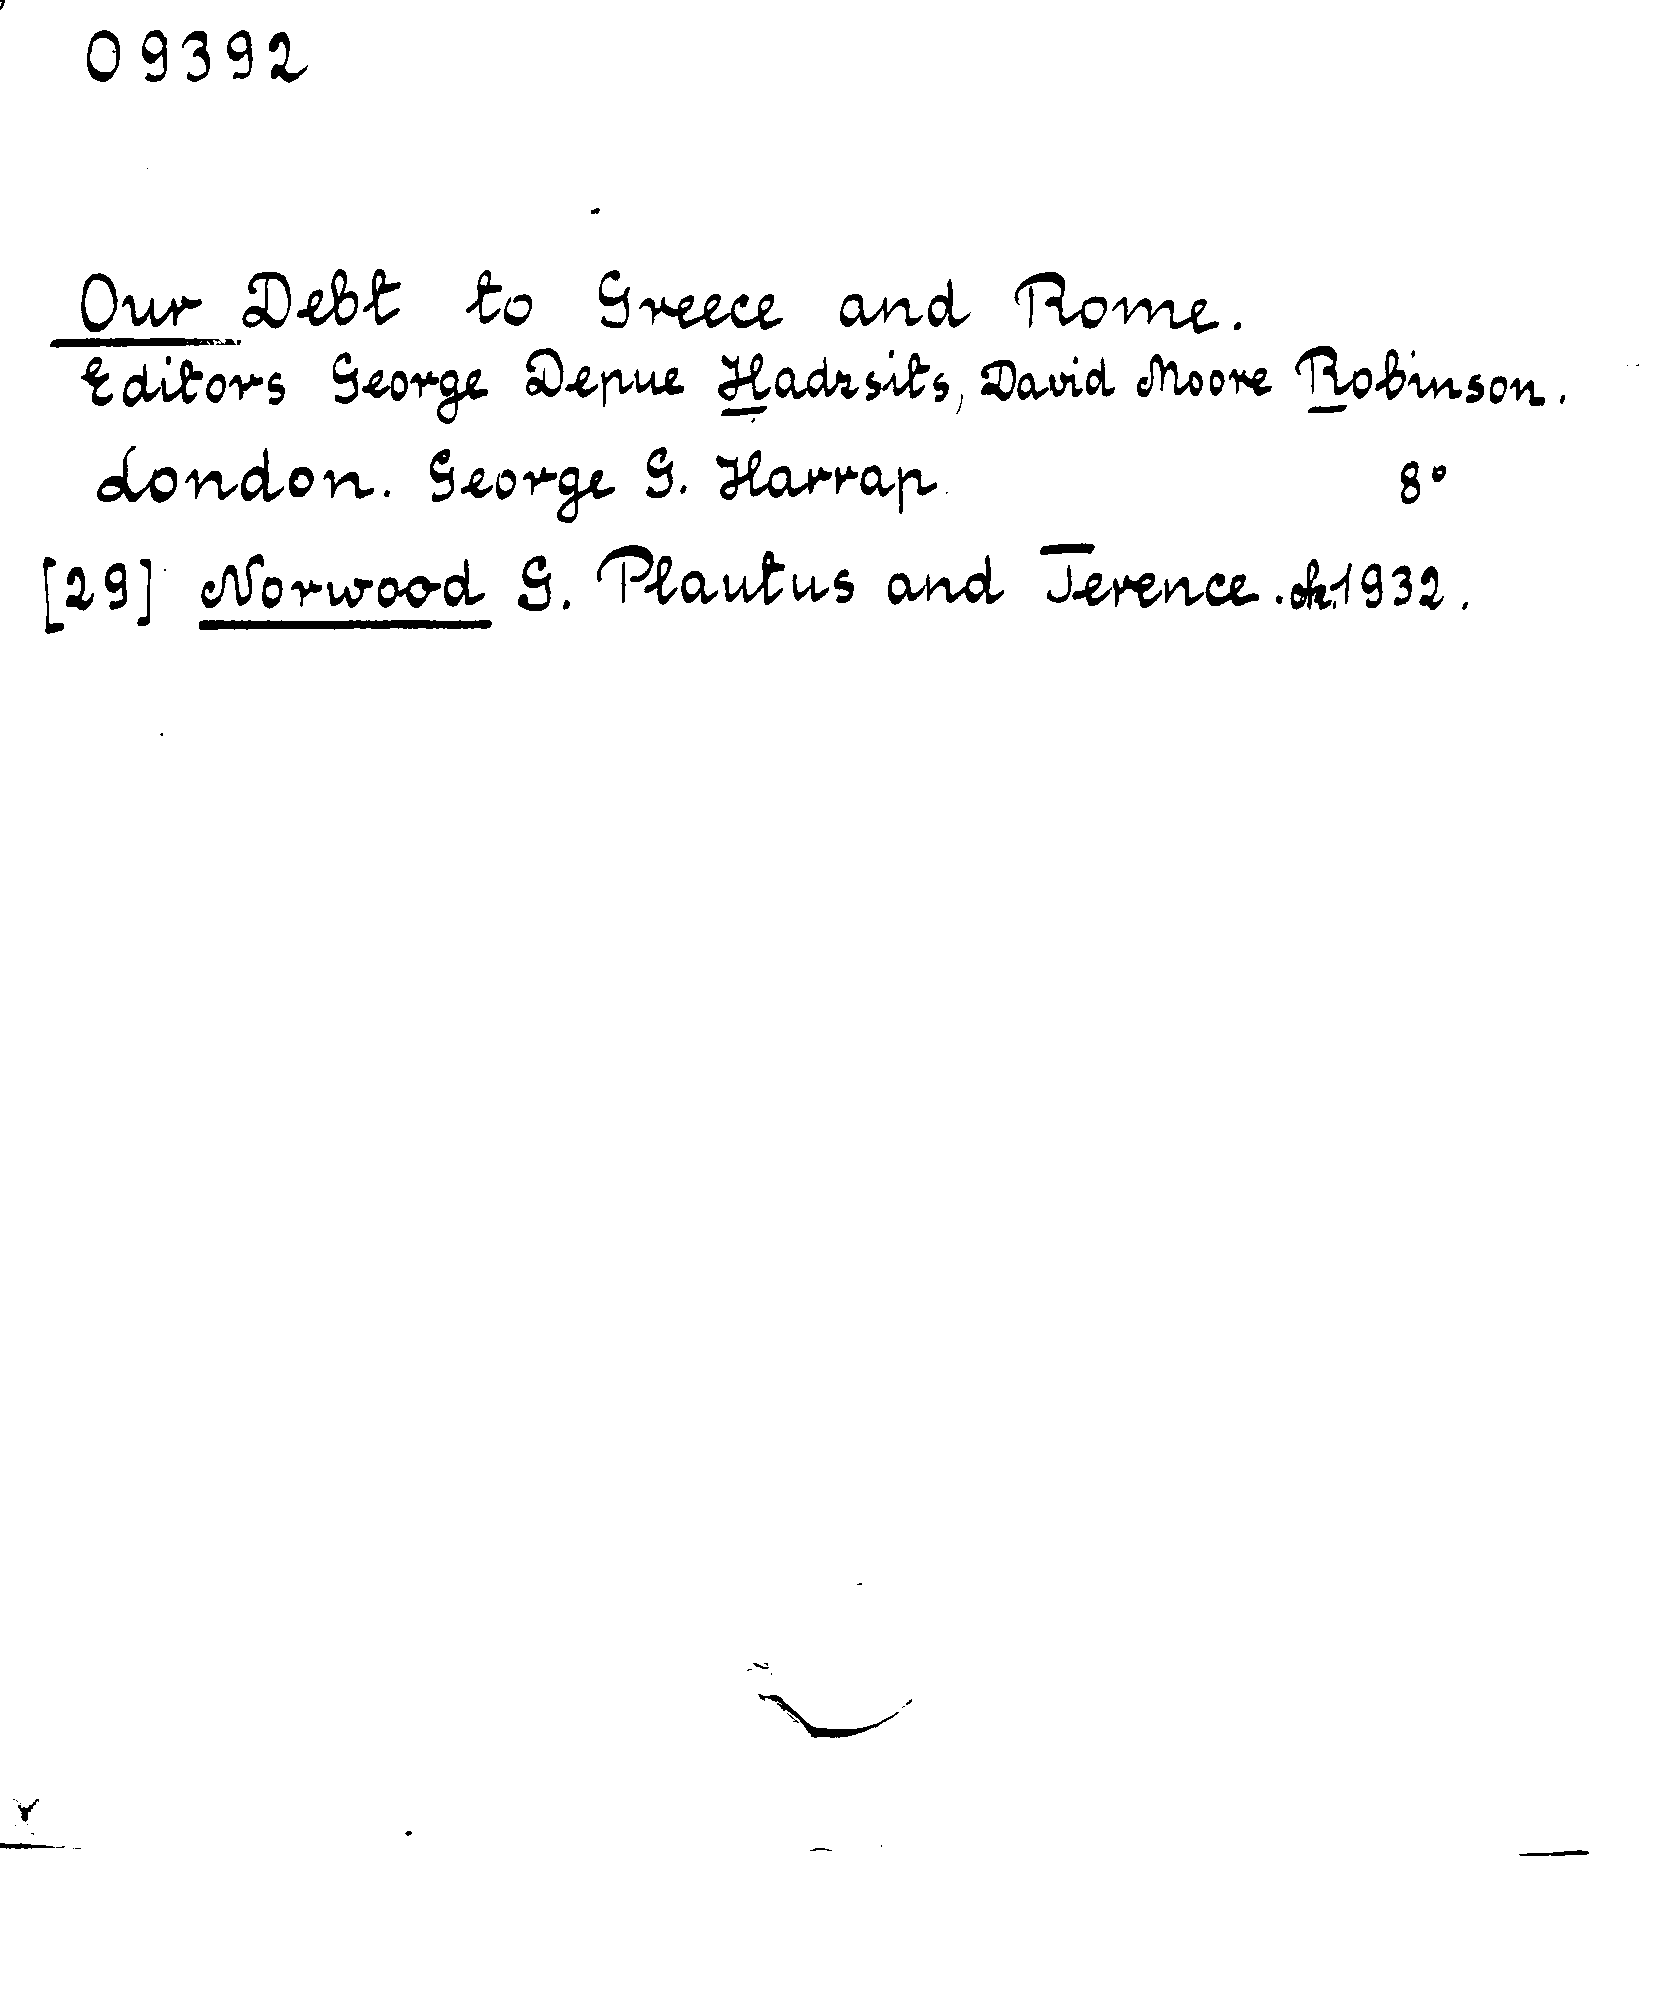 09392
Our Debt to Greece and Rome.
Editors George Depue Hadzsits, David Moore Robinson.
London. George G. Harrap 8°
[29] Norwood G. Plautus and Terence. ok. 1932.